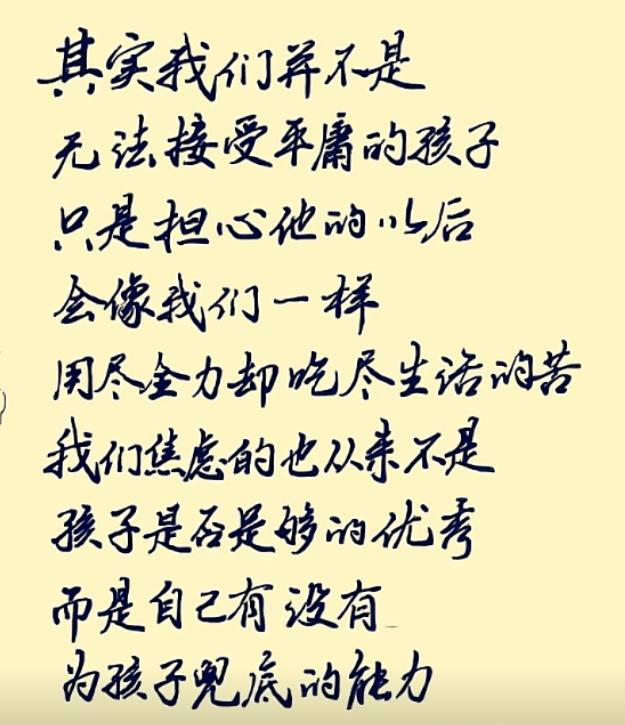 其实我们并不是
无法接受平庸的孩子
只是担心他的以后
会像我们一样
用尽全力却吃尽生活的苦
我们焦虑的也从来不是
孩子是否足够的优秀
而是自己有没有
为孩子兜底的能力